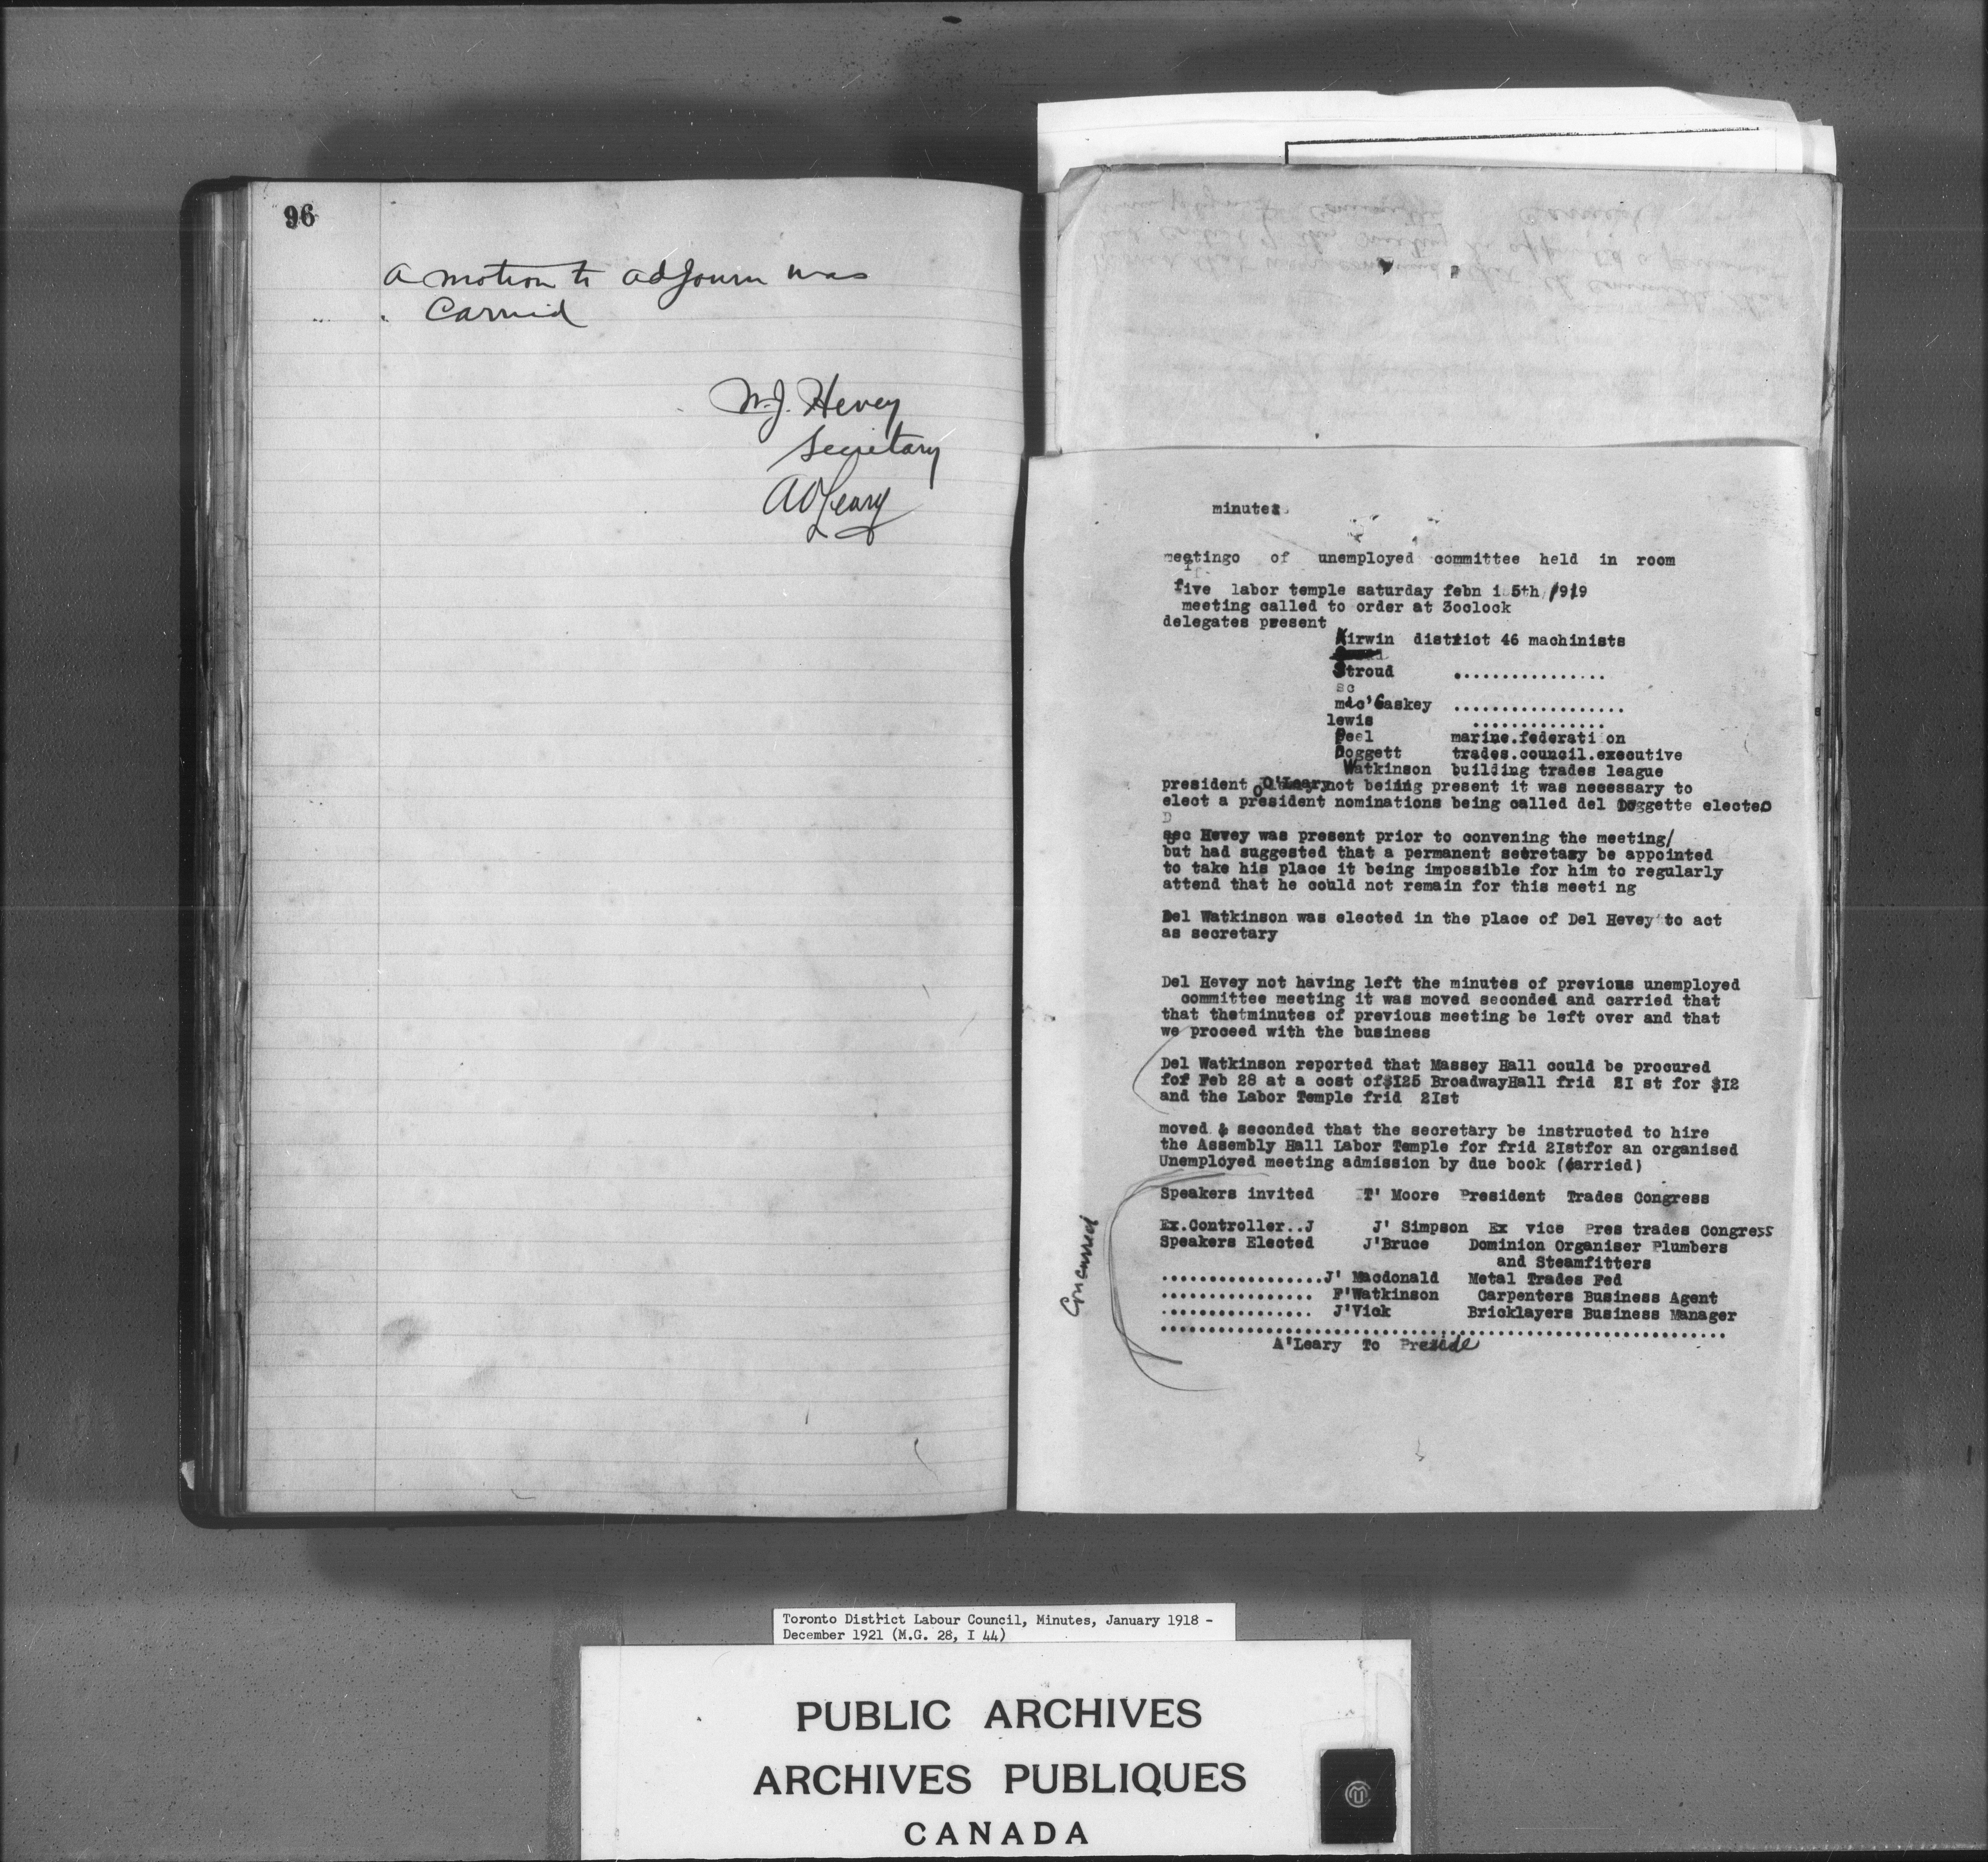 96
a motion to adjourn was
carried
W.J. Hevey
Secretary
A O'Leary
minutes
meetingo of unemployed committee held in room
five labor temple saturday febn 15th /919
meeting called to order at 3oclock
delegates present
Kirwin district 46 machinists
Stroud ................
sc
mac'Caskey ..................
lewis ..............
Peel marine.federation
Doggett trades.council.executive
Watkinson building trades league
president O'Leary not beiing present it was necessary to
elect a president nominations being called del Doggette elected
D
sec Hevey was present prior to convening the meeting/
but had suggested that a permanent secretary be appointed
to take his place it being impossible for him to regularly
attend that he could not remain for this meeti ng
Del Watkinson was elected in the place of Del Hevey to act
as secretary
Del Hevey not having left the minutes of previous unemployed
committee meeting it was moved seconded and carried that
that thetminutes of previous meeting be left over and that
we proceed with the business
Del Watkinson reported that Massey Hall could be procured
for Feb 28 at a cost of$I25 BroadwayHall frid 2I st for $I2
and the Labor Temple frid 2Ist
moved & seconded that the secretary be instructed to hire
the Assembly Hall Labor Temple for frid 2Istfor an organised
Unemployed meeting admission by due book (carried)
Speakers invited T' Moore President Trades Congress
Ex.Controller..J J' Simpson Ex vice Pres trades Congress
Speakers Elected J'Bruce Dominion Organiser Plumbers
and Steamfitters
.................J' Macdonald Metal Trades Fed
................ F'Watkinson Carpenters Business Agent
................ J'Vick Bricklayers Business Manager
............................................................
A'Leary To Preside
Concurred
Toronto District Labour Council, Minutes, January 1918 -
December 1921 (M.G. 28, I 44)
PUBLIC ARCHIVES
ARCHIVES PUBLIQUES
CANADA